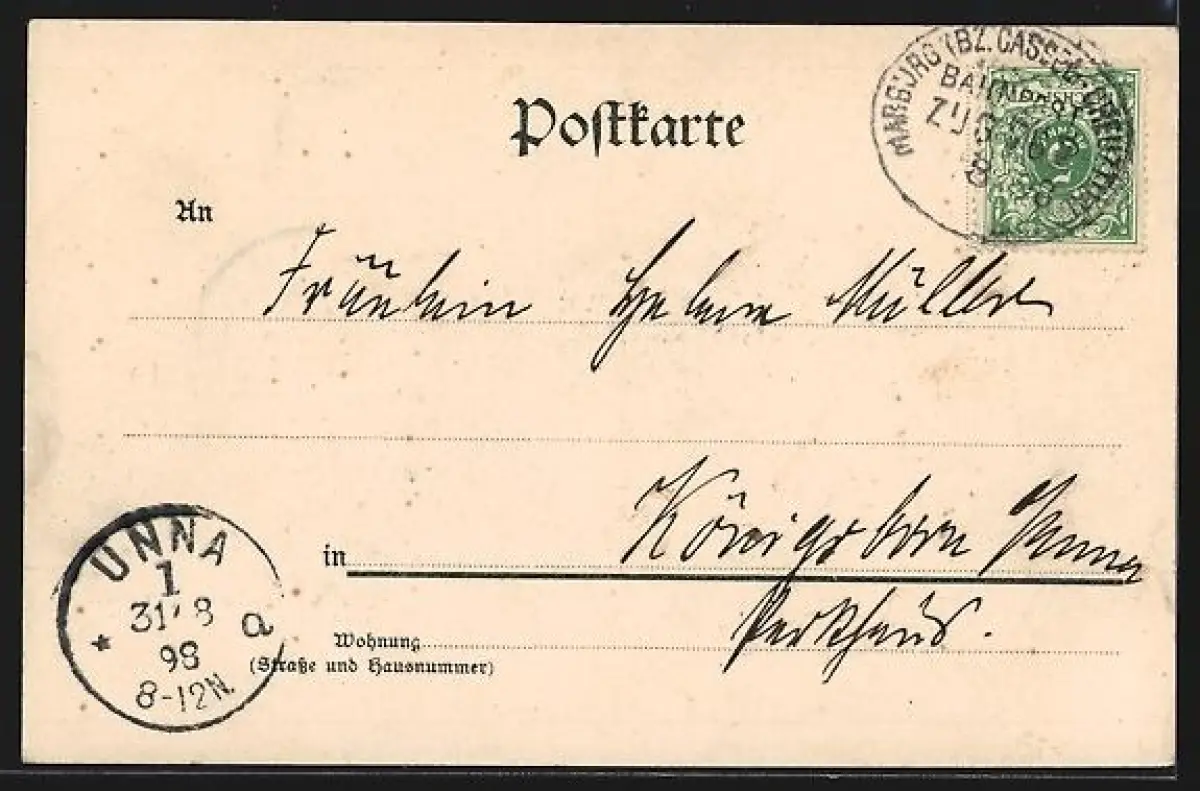 Postkarte
MARBURG (BZ. CASSEL)-CREUZTHAL
BAHNPOST
ZUG
An
Fräulein Helene Müller
in Königsborn Unna
Parkhaus.
Wohnung
(Straße und Hausnummer)
UNNA
1
31/8
98
8-12N.
* a